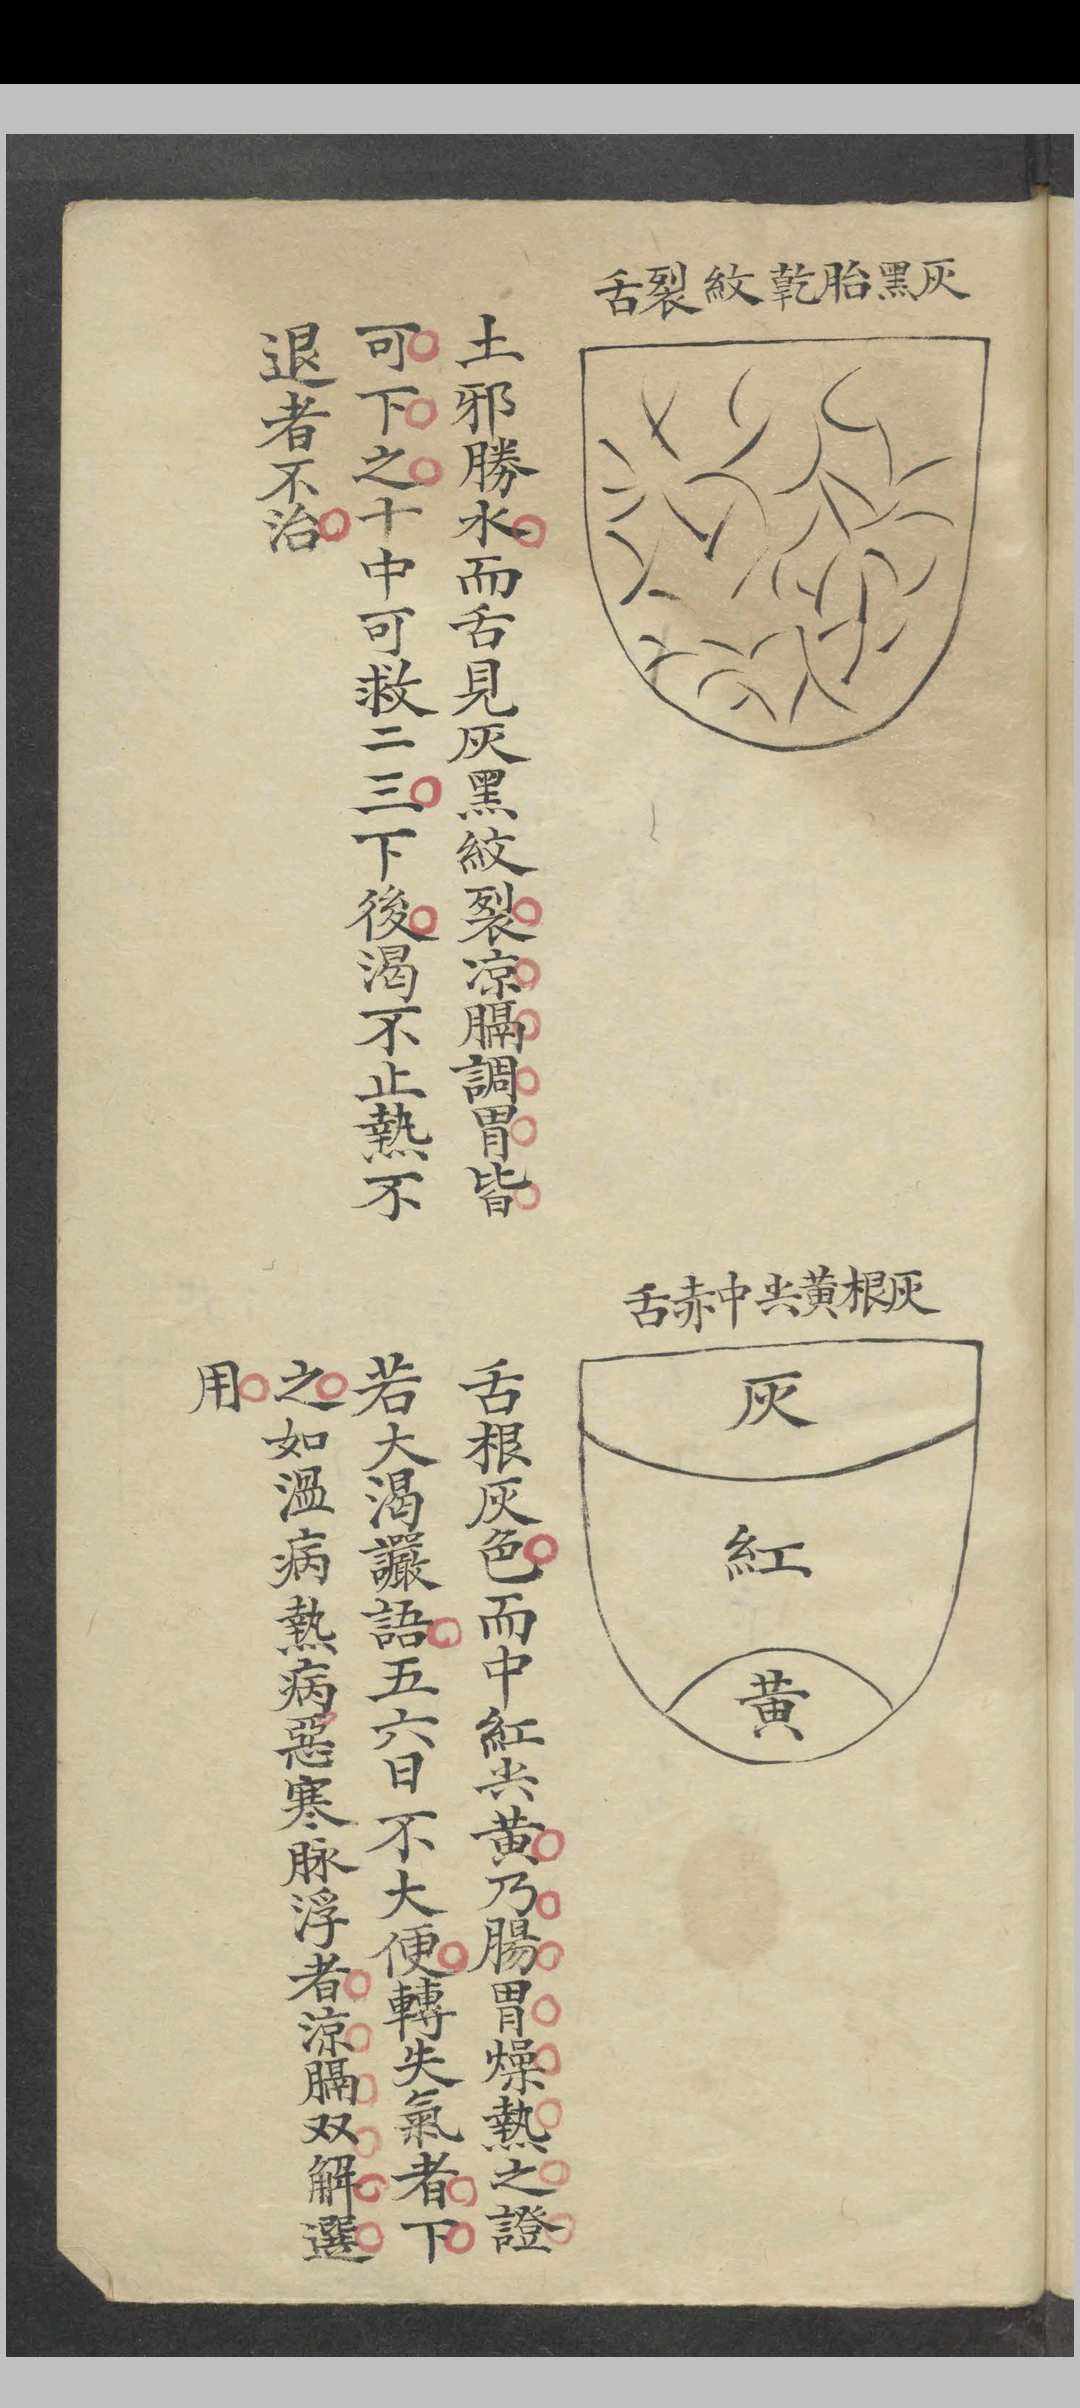 灰黑胎乾紋裂舌
土邪勝水而舌見灰黑紋裂凉膈調胃皆
可下之十中可救二三下後渴不止熱不
退者不治
灰根黄尖中赤舌
灰
紅
黄
舌根灰色而中紅尖黄乃腸胃燥熱之證
若大渴讝語五六日不大便轉失氣者下
之如溫病熱病惡寒脉浮者凉膈双解選
用